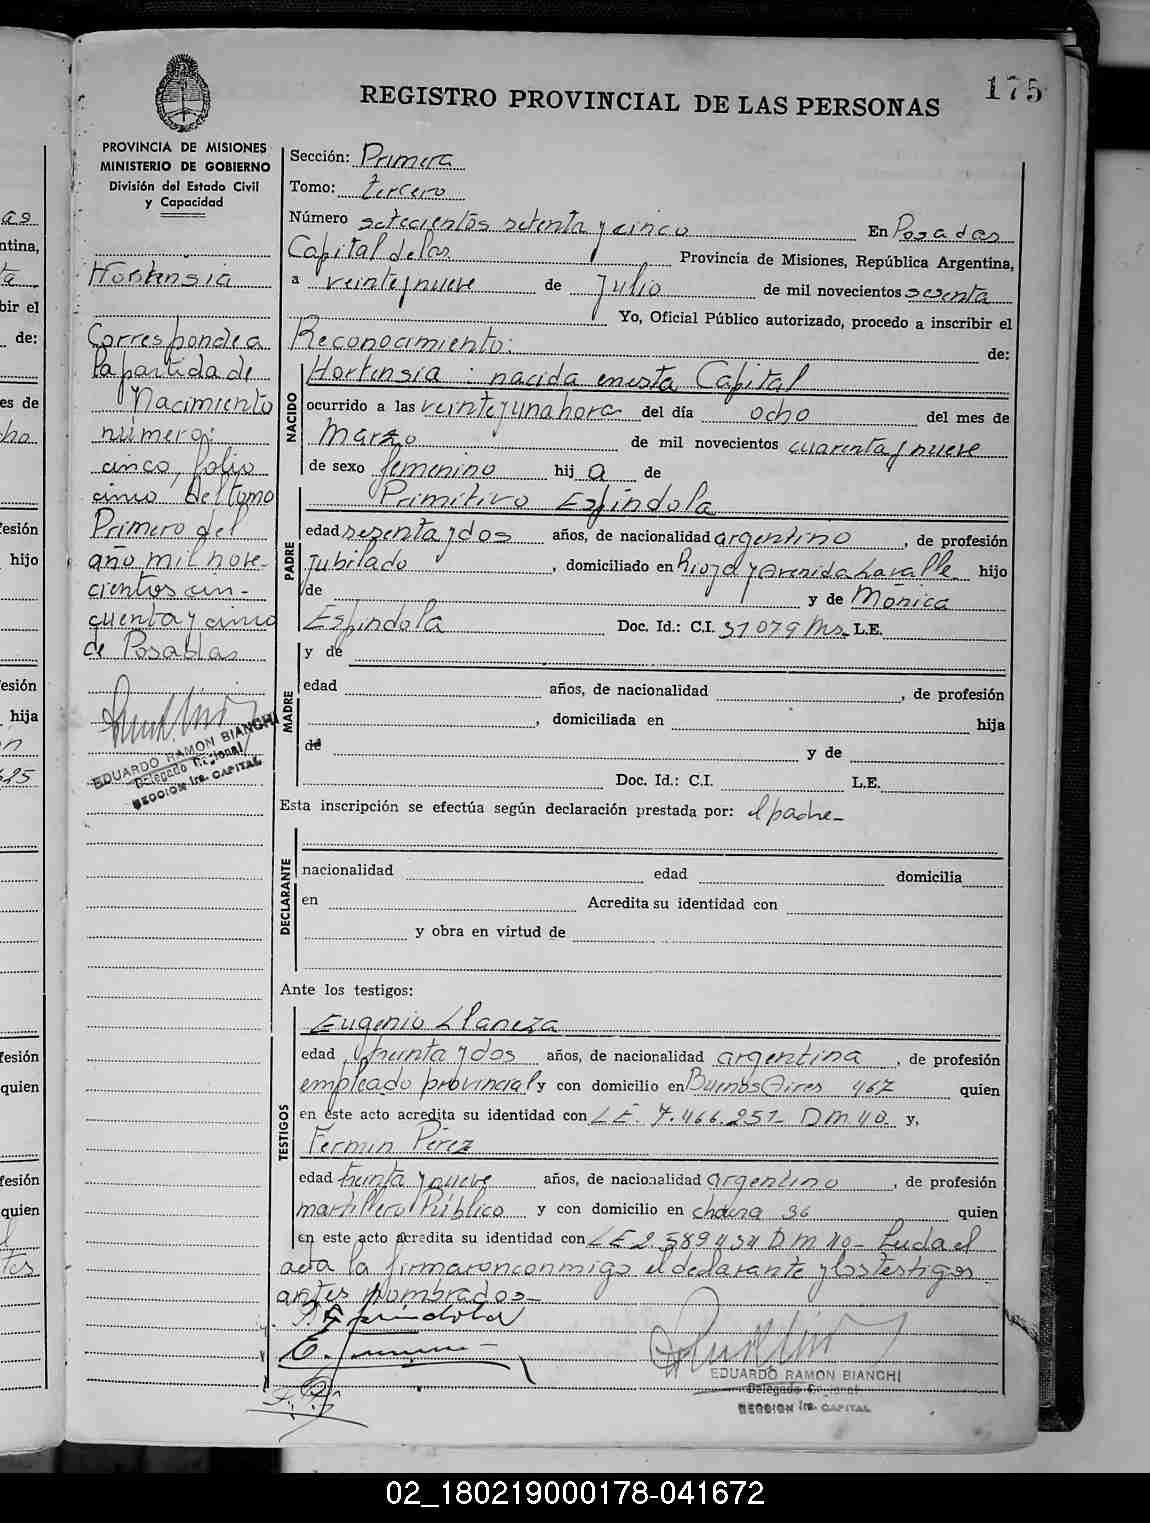 175
REGISTRO PROVINCIAL DE LAS PERSONAS
PROVINCIA DE MISIONES
MINISTERIO DE GOBIERNO
División del Estado Civil
y Capacidad
Hortensia
Corresponde a
la partida de
Nacimiento
número:
cinco, folio
cinco del tomo
Primero del
año mil nove-
cientos cin-
cuenta y cinco
de Posadas
EDUARDO RAMON BIANCHI
Delegado Regional
SECCION 1ra. CAPITAL
Sección: Primera
Tomo: tercero
Número setecientos setenta y cinco En Posadas
Capital de las Provincia de Misiones, República Argentina,
a veinte y nueve de Julio de mil novecientos sesenta
Yo, Oficial Público autorizado, procedo a inscribir el
Reconocimiento: de:
NACIDO
Hortensia : nacida en esta Capital
ocurrido a las veinte y una hora del día ocho del mes de
Marzo de mil novecientos cuarenta y nueve
de sexo femenino hij a de
PADRE
Primitivo Espíndola
edad sesenta y dos años, de nacionalidad argentino, de profesión
Jubilado, domiciliado en Rioja y Avenida Lavalle hijo
de y de Mónica
Espíndola Doc. Id.: C.I. 31079 Ms. L.E.
MADRE
y de
edad años, de nacionalidad, de profesión
, domiciliada en hija
de y de
Doc. Id.: C.I. L.E.
Esta inscripción se efectúa según declaración prestada por: el padre_
DECLARANTE
nacionalidad edad domicilia
en Acredita su identidad con
y obra en virtud de
Ante los testigos:
TESTIGOS
Eugenio Llaneza
edad treinta y dos años, de nacionalidad argentina, de profesión
empleado provincial y con domicilio en Buenos Aires 467 quien
en este acto acredita su identidad con L.E. 7.466.251- D.M.40. y,
Fermin Pérez
edad treinta y nueve años, de nacionalidad argentino, de profesión
martillero Público y con domicilio en 36 quien
en este acto acredita su identidad con L.E 2.589434 D M 40_ Leida el
acta la firmaron conmigo el declarante y los testigos
antes nombrados_
P. Espindola
EDUARDO RAMON BIANCHI
Delegado Regional
SECCION 1ra. CAPITAL
02_180219000178-041672